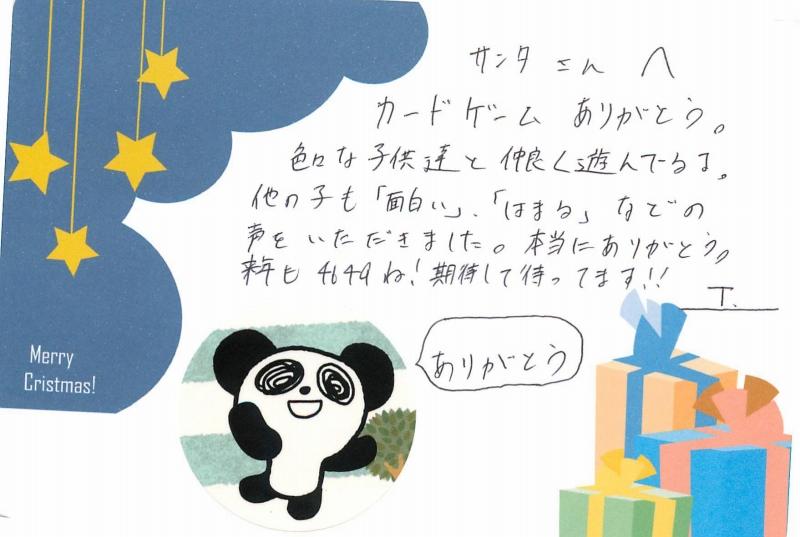 サンタさんへ
カードゲーム ありがとう。
色々な子供達と仲良く遊んでいるよ。
他の子も「面白い」、「はまる」などの
声をいただきました。本当にありがとう。
来年も4649ね!期待して待ってます!!
T.
ありがとう
Merry
Cristmas!